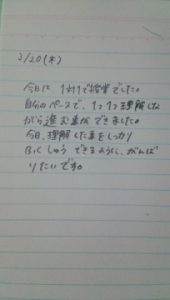 3/20(木)
今日は、1対1で授業でした。
自分のペースで、1つ1つ理解しな
がら進む事ができました。
今日、理解した事をしっかり
ふくしゅうできるように、がんば
りたいです。